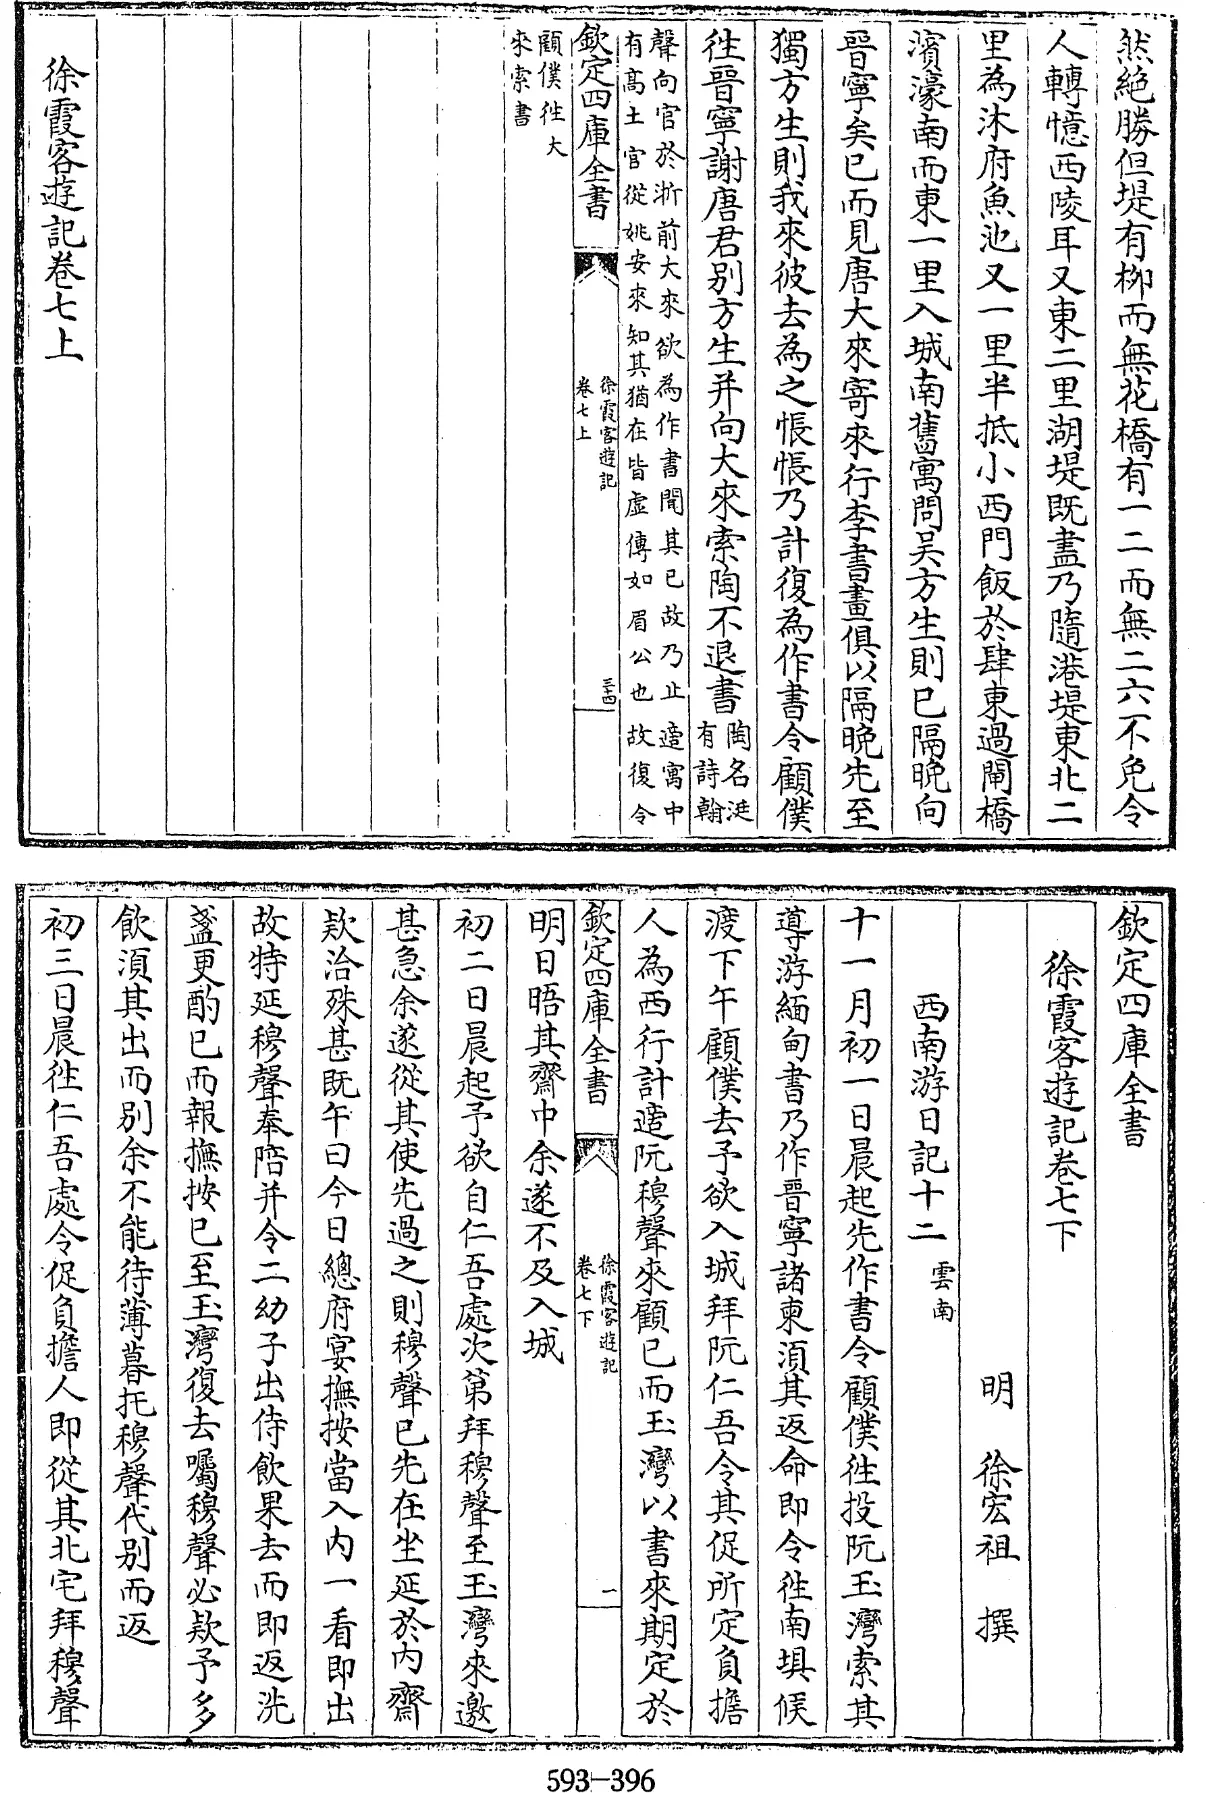 然絶勝但堤有柳而無花橋有一二而無二六不免令
人轉憶西陵耳又東二里湖堤既盡乃隨港堤東北二
里為沐府魚池又一里半抵小西門飯於肆東過閘橋
濱濠南而東一里入城南舊寓問吴方生則已隔晚向
晉寧矣已而見唐大來寄來行李書畫俱以隔晚先至
獨方生則我來彼去為之悵悵乃計復為作書令顧僕
徃晉寧謝唐君别方生并向大來索陶不退書
陶名珽
有詩翰
聲向官於浙前大來欲為作書聞其已故乃止適寓中
有髙土官從姚安來知其猶在皆虚傳如眉公也故復令
欽定四庫全書
徐霞客遊記
卷七上
三十四
顧僕徃大
來索書
徐霞客遊記卷七上
欽定四庫全書
徐霞客遊記卷七下
明 徐宏祖 撰
西南游日記十二 雲南
十一月初一日晨起先作書令顧僕徃投阮玉灣索其
導游緬甸書乃作晉寧諸柬湏其返命即令徃南垻候
渡下午顧僕去予欲入城拜阮仁吾令其促所定負擔
人為西行計適阮穆聲來顧已而玉灣以書來期定於
欽定四庫全書
徐霞客遊記
卷七下
一
明日晤其齋中余遂不及入城
初二日晨起予欲自仁吾處次第拜穆聲至玉灣來邀
甚急余遂從其使先過之則穆聲已先在坐延於内齋
欵洽殊甚既午曰今日總府宴撫按當入内一看即出
故特延穆聲奉陪并令二幼子出侍飲果去而即返洗
盞更酌已而報撫按已至玉灣復去囑穆聲必欵予多
飲湏其出而别余不能待薄暮托穆聲代别而返
初三日晨徃仁吾處令促負擔人即從其北宅拜穆聲
593-396